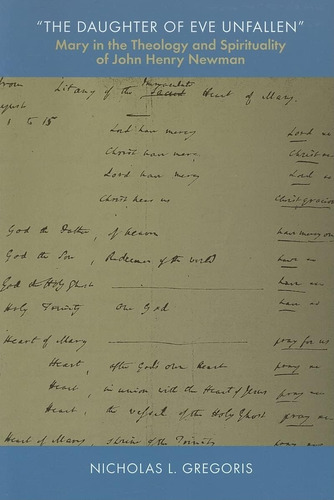 "THE DAUGHTER OF EVE UNFALLEN"
Mary in the Theology and Spirituality
of John Henry Newman
from Litany of the Immaculate Heart of Mary.
August
1 to 15
Lord have mercy Lord
Christ have mercy. Christ
Lord have mercy Lord
Christ hear us Christ graciou
God the Father, of heaven have mercy on
God the Son, Redeemer of the world have
God the Holy Ghost have
Holy Trinity One God have
Heart of Mary pray for us
Heart, after God's own Heart pray
Heart, in union with the Heart of Jesus pray
Heart, the vessel of the Holy Ghost pray
Heart of Mary, shrine of the Trinity
NICHOLAS L. GREGORIS